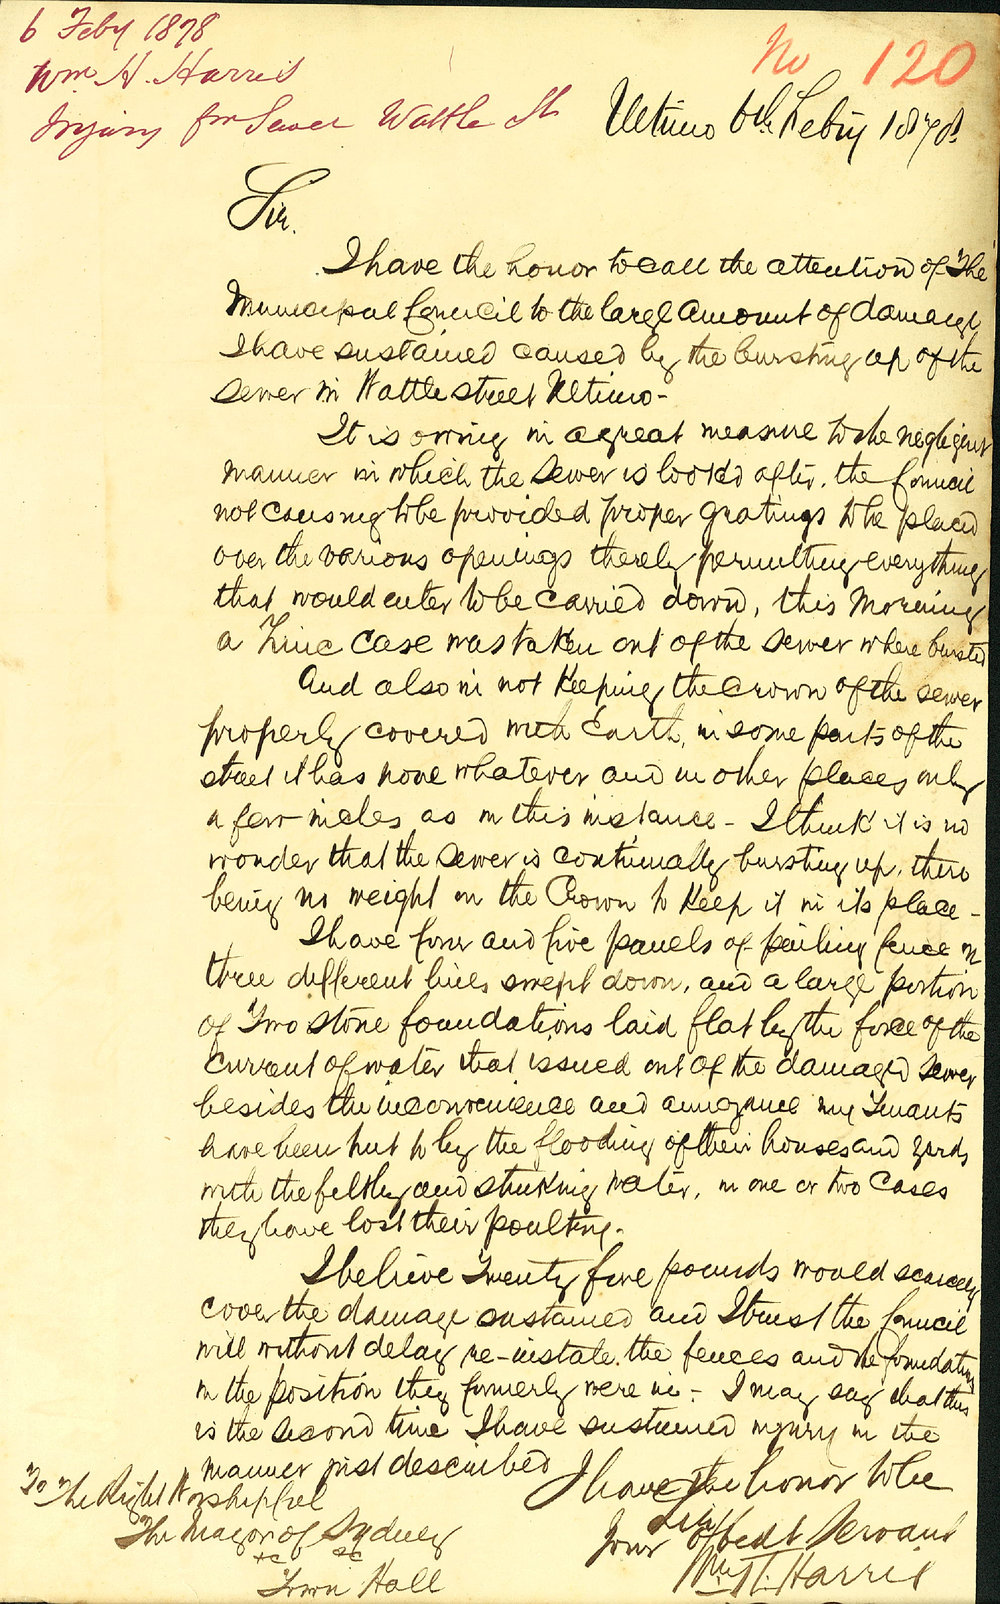 6 Feby 1878
Wm. H. Harris
Injury fm Sewer Wattle St
No 120
Ultimo 6th Febry 1878.
Sir.
I have the honor to call the attention of The
Municipal Council to the large amount of damage
I have sustained caused by the bursting up of the
sewer in Wattle street Ultimo -
It is owing in a great measure to the negligent
manner in which the Sewer is look'd after. the Council
not causing to be provided proper gratings to be placed
over the various openings thereby permitting everything
that would enter to be carried down, this Morning
a Zinc Case was taken out of the Sewer where bursted
And also in not Keeping the crown of the sewer
properly covered with Earth, in some parts of the
street it has none whatever and in other places only
a few inches as in this instance - I think it is no
wonder that the Sewer is continually bursting up, there
being no weight on the Crown to Keep it in its place -
I have four and five panels of pailing fence in
three different lines swept down, and a large portion
of Two stone foundations laid flat by the force of the
current of water that issued out of the damaged Sewer
besides the inconvenience and annoyance my Tenants
have been put to by the flooding of their houses and yards
with the filthy and stinking water, in one or two Cases
they have lost their poultry.
I believe Twenty five pounds would scarcely
cover the damage sustained and I trust the Council
will without delay re-instate the fences and the foundations
in the position they formerly were in - I may say that this
is the second time I have sustained injury in the
manner just described
I have the honor to be
Sir
Your obedt Servant
Wm. H. Harris
To The Right Worshipful
The Mayor of Sydney
&c &c
Town Hall